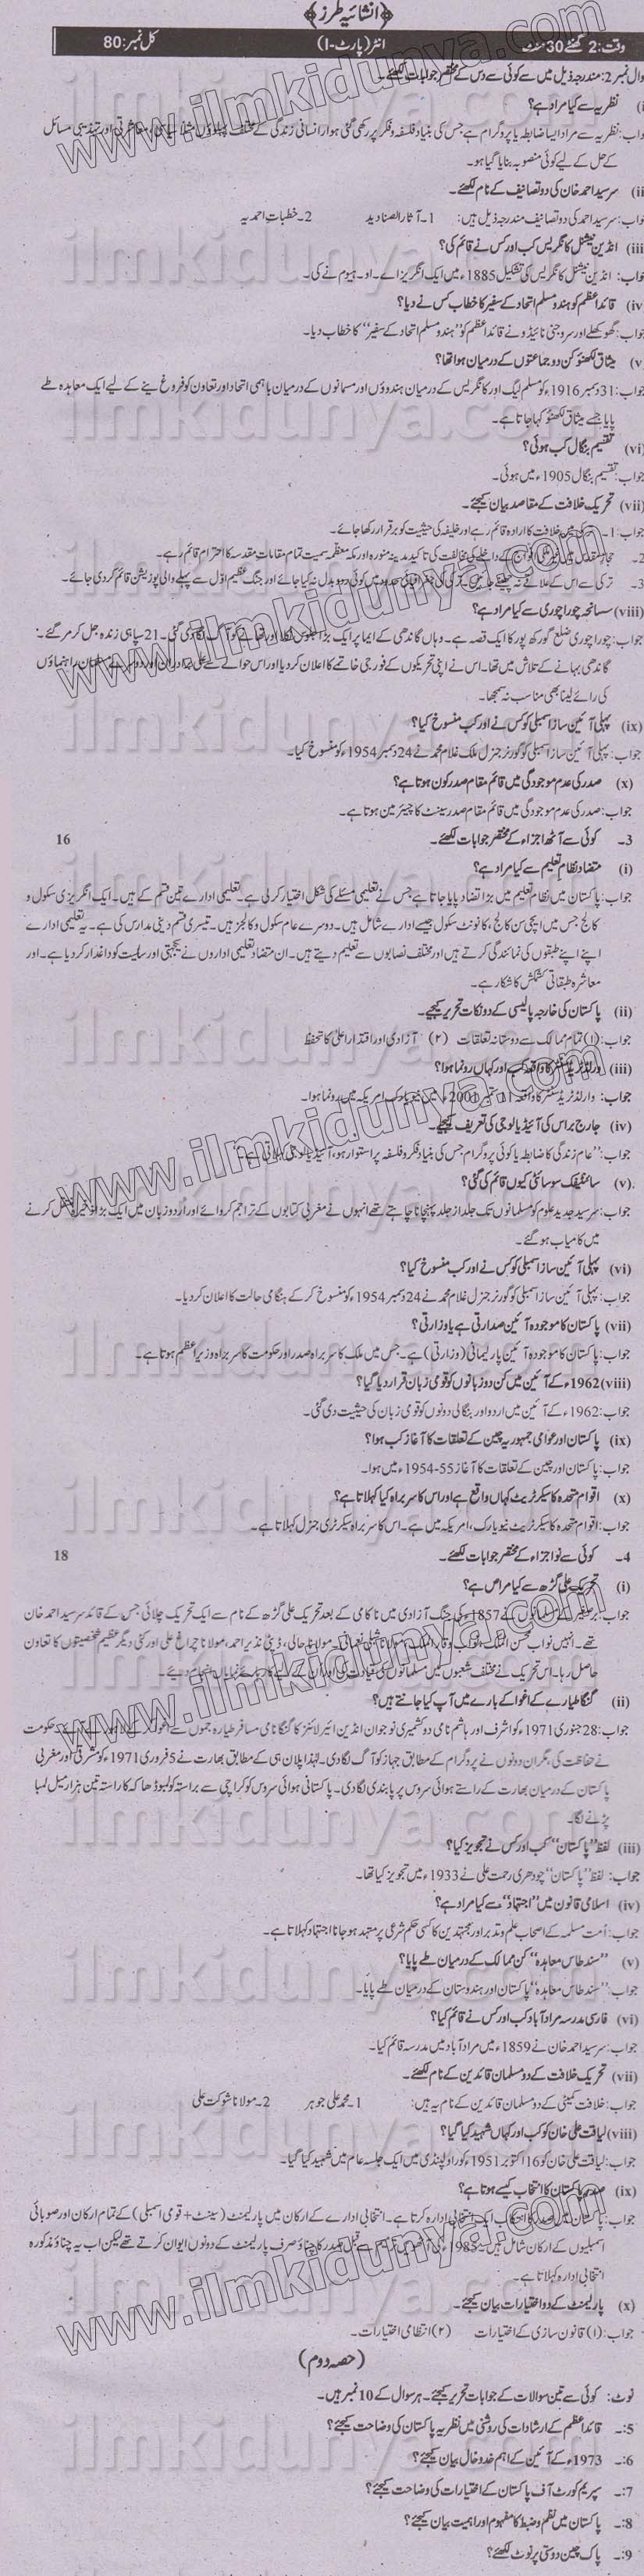 ﴿انشائیہ طرز﴾
وقت: 2 گھنٹے 30 منٹ انٹر (پارٹ-I) کل نمبر: 80
وال نمبر 2: مندرجہ ذیل میں سے کوئی سے دس کے مختصر جوابات لکھئے۔
(i نظریہ سے کیا مراد ہے؟
واب: نظریہ سے مراد ایسا ضابطہ یا پروگرام ہے جس کی بنیاد فلسفہ و فکر پر رکھی گئی ہو اور انسانی زندگی کے مختلف پہلوؤں مثلاً سیاسی، معاشرتی اور تہذیبی مسائل
کے حل کے لیے کوئی منصوبہ بنایا گیا ہو۔
(ii سرسید احمد خان کی دو تصانیف کے نام لکھئے۔
واب: سرسید احمد کی دو تصانیف مندرجہ ذیل ہیں: 1۔ آثار الصنادید 2۔ خطبات احمدیہ
(iii انڈین نیشنل کانگریس کب اور کس نے قائم کی؟
واب: انڈین نیشنل کانگریس کی تشکیل 1885ء میں ایک انگریز اے۔ او۔ ہیوم نے کی۔
(iv قائداعظم کو ہندو مسلم اتحاد کے سفیر کا خطاب کس نے دیا؟
جواب: گھوکھلے اور سروجنی نائیڈو نے قائداعظم کو "ہندو مسلم اتحاد کے سفیر" کا خطاب دیا۔
(v میثاق لکھنؤ کن دو جماعتوں کے درمیان ہوا تھا؟
جواب: 31 دسمبر 1916ء کو مسلم لیگ اور کانگریس کے درمیان ہندوؤں اور مسلمانوں کے درمیان باہمی اتحاد اور تعاون کو فروغ دینے کے لیے ایک معاہدہ طے
پایا جسے میثاق لکھنؤ کہا جاتا ہے۔
(vi) تقسیم بنگال کب ہوئی؟
جواب: تقسیم بنگال 1905ء میں ہوئی۔
(vii) تحریک خلافت کے مقاصد بیان کیجئے۔
جواب: 1۔ ترکی میں خلافت کا ارادہ قائم رہے اور خلیفہ کی حیثیت کو برقرار رکھا جائے۔
2۔ حجاز مقدس میں داخلے کی مخالفت کی تاکید مدینہ منورہ اور مکہ معظمہ سمیت تمام مقامات مقدسہ کا احترام قائم رہے۔
3۔ ترکی سے اس کے علاقے نہ چھینے جائیں۔ ترکی کی جغرافیائی حدود میں کوئی ردوبدل نہ کیا جائے اور جنگ عظیم اوّل سے پہلے والی پوزیشن قائم کر دی جائے۔
(viii) سانحہ چورا چوری سے کیا مراد ہے؟
جواب: چورا چوری ضلع گورکھ پور کا ایک قصبہ ہے۔ وہاں گاندھی کے ایما پر ایک بڑا جلوس نکلا اور تھانے کو آگ لگا دی گئی۔ 21 سپاہی زندہ جل کر مر گئے۔
گاندھی بہانے کے تلاش میں تھا۔ اس نے اپنی تحریکوں کے فوری خاتمے کا اعلان کر دیا اور اس حوالے سے علی برادران اور دوسرے مسلمان راہنماؤں
کی رائے لینا بھی مناسب نہ سمجھا۔
(ix) پہلی آئین ساز اسمبلی کو کس نے اور کب منسوخ کیا؟
جواب: پہلی آئین ساز اسمبلی کو گورنر جنرل ملک غلام محمد نے 24 دسمبر 1954ء کو منسوخ کیا۔
(x) صدر کی عدم موجودگی میں قائم مقام صدر کون ہوتا ہے؟
جواب: صدر کی عدم موجودگی میں قائم مقام صدر سینٹ کا چیئرمین ہوتا ہے۔
3۔ کوئی سے آٹھ اجزاء کے مختصر جوابات لکھئے۔ 16
(i) متضاد نظام تعلیم سے کیا مراد ہے؟
جواب: پاکستان میں نظام تعلیم میں بڑا تضاد پایا جاتا ہے جس نے تعلیمی مسئلے کی شکل اختیار کر لی ہے۔ تعلیمی ادارے تین قسم کے ہیں۔ ایک انگریزی سکول و
کالج جس میں ایچی سن کالج، کانونٹ سکول جیسے ادارے شامل ہیں۔ دوسرے عام سکول و کالجز ہیں۔ تیسری قسم دینی مدارس کی ہے۔ یہ تعلیمی ادارے
اپنے اپنے طبقوں کی نمائندگی کرتے ہیں اور مختلف نصابوں سے تعلیم دیتے ہیں۔ ان متضاد تعلیمی اداروں نے یکجہتی اور سالمیت کو داغدار کر دیا ہے۔ اور
معاشرہ طبقاتی کشمکش کا شکار ہے۔
(ii) پاکستان کی خارجہ پالیسی کے دو نکات تحریر کیجیے۔
جواب: (۱) تمام ممالک سے دوستانہ تعلقات (۲) آزادی اور اقتدار اعلیٰ کا تحفظ
(iii) ورلڈ ٹریڈ سنٹر کا واقعہ کب اور کہاں رونما ہوا؟
جواب: ورلڈ ٹریڈ سنٹر کا واقعہ 11 ستمبر 2001ء میں نیویارک امریکہ میں رونما ہوا۔
(iv) جارج براس کی آئیڈیالوجی کی تعریف کیجئے۔
جواب: "عام زندگی کا ضابطہ یا کوئی پروگرام جس کی بنیاد فکر و فلسفہ پر استوار ہو، آئیڈیالوجی کہلاتی ہے"
(v) سائنٹیفک سوسائٹی کیوں قائم کی گئی؟
جواب: سرسید جدید علوم کو مسلمانوں تک جلد از جلد پہنچانا چاہتے تھے انہوں نے مغربی کتابوں کے تراجم کروائے اور اُردو زبان میں ایک بڑا ذخیرہ منتقل کرنے
میں کامیاب ہو گئے۔
(vi) پہلی آئین ساز اسمبلی کو کس نے اور کب منسوخ کیا؟
جواب: پہلی آئین ساز اسمبلی کو گورنر جنرل غلام محمد نے 24 دسمبر 1954ء کو منسوخ کر کے ہنگامی حالت کا اعلان کر دیا۔
(vii) پاکستان کا موجودہ آئین صدارتی ہے یا وزارتی؟
جواب: پاکستان کا موجودہ آئین پارلیمانی (وزارتی) ہے۔ جس میں ملک کا سربراہ صدر اور حکومت کا سربراہ وزیراعظم ہوتا ہے۔
(viii) 1962ء کے آئین میں کن دو زبانوں کو قومی زبان قرار دیا گیا؟
جواب: 1962ء کے آئین میں اردو اور بنگالی دونوں کو قومی زبان کی حیثیت دی گئی۔
(ix) پاکستان اور عوامی جمہوریہ چین کے تعلقات کا آغاز کب ہوا؟
جواب: پاکستان اور چین کے تعلقات کا آغاز 55-1954ء میں ہوا۔
(x) اقوام متحدہ کا سیکرٹریٹ کہاں واقع ہے اور اس کا سربراہ کیا کہلاتا ہے؟
جواب: اقوام متحدہ کا سیکرٹریٹ نیویارک، امریکہ میں ہے۔ اس کا سربراہ سیکرٹری جنرل کہلاتا ہے۔
4۔ کوئی سے نو اجزاء کے مختصر جوابات لکھئے۔ 18
(i) تحریک علی گڑھ سے کیا مراد ہے؟
جواب: برصغیر کے مسلمانوں نے 1857ء کی جنگ آزادی میں ناکامی کے بعد تحریک علی گڑھ کے نام سے ایک تحریک چلائی جس کے قائد سرسید احمد خان
تھے۔ انہیں نواب محسن الملک، نواب وقار الملک، مولانا شبلی نعمانی، مولانا حالی، ڈپٹی نذیر احمد، مولانا چراغ علی اور کئی دیگر عظیم شخصیتوں کا تعاون
حاصل رہا۔ اس تحریک نے مختلف شعبوں میں مسلمانوں کی قیادت کی اور ان کے لیے کارہائے نمایاں انجام دیئے۔
(ii) گنگا طیارے کے اغوا کے بارے میں آپ کیا جانتے ہیں؟
جواب: 28 جنوری 1971ء کو اشرف اور ہاشم نامی دو کشمیری نوجوان انڈین ایئر لائنز کا گنگا نامی مسافر طیارہ جموں سے اغوا کر کے لاہور لے آئے۔ حکومت
نے حفاظت کی، مگر ان دونوں نے پروگرام کے مطابق جہاز کو آگ لگا دی۔ لہٰذا پلان ہی کے مطابق بھارت نے 5 فروری 1971ء کو مشرقی اور مغربی
پاکستان کے درمیان بھارت کے راستے ہوائی سروس پر پابندی لگا دی۔ پاکستانی ہوائی سروس کو کراچی سے براستہ کولمبو ڈھاکہ کا راستہ تین ہزار میل لمبا
پڑنے لگا۔
(iii) لفظ "پاکستان" کب اور کس نے تجویز کیا؟
جواب: لفظ "پاکستان" چودھری رحمت علی نے 1933ء میں تجویز کیا تھا۔
(iv) اسلامی قانون میں "اجتہاد" سے کیا مراد ہے؟
جواب: اُمت مسلمہ کے اصحاب علم و تدبر اور مجتہدین کا کسی حکم شرعی پر متحد ہو جانا اجتہاد کہلاتا ہے۔
(v) "سندھ طاس معاہدہ" کن ممالک کے درمیان طے پایا؟
جواب: "سندھ طاس معاہدہ" پاکستان اور ہندوستان کے درمیان طے پایا۔
(vi) فارسی مدرسہ مراد آباد کب اور کس نے قائم کیا؟
جواب: سرسید احمد خان نے 1859ء میں مراد آباد میں مدرسہ قائم کیا۔
(vii) تحریک خلافت کے دو مسلمان قائدین کے نام لکھئے۔
جواب: خلافت کمیٹی کے دو مسلمان قائدین کے نام یہ ہیں: 1۔ محمد علی جوہر 2۔ مولانا شوکت علی
(viii) لیاقت علی خان کو کب اور کہاں شہید کیا گیا؟
جواب: لیاقت علی خان کو 16 اکتوبر 1951ء کو راولپنڈی میں ایک جلسہ عام میں شہید کیا گیا۔
(ix) صدر پاکستان کا انتخاب کیسے ہوتا ہے؟
جواب: پاکستان میں صدر کا انتخاب ایک انتخابی ادارہ کرتا ہے۔ انتخابی ادارے کے ارکان میں پارلیمنٹ (سینٹ + قومی اسمبلی) کے تمام ارکان اور صوبائی
اسمبلیوں کے ارکان شامل ہیں۔ 1985ء کی آٹھویں ترمیم سے قبل صدر کا چناؤ صرف پارلیمنٹ کے دونوں ایوان کرتے تھے لیکن اب یہ چناؤ مذکورہ
انتخابی ادارہ کہلاتا ہے۔
(x) پارلیمنٹ کے دو اختیارات بیان کیجئے۔
جواب: (۱) قانون سازی کے اختیارات (۲) انتظامی اختیارات۔
(حصہ دوم)
نوٹ: کوئی سے تین سوالات کے جوابات تحریر کیجئے۔ ہر سوال کے 10 نمبر ہیں۔
5:۔ قائداعظم کے ارشادات کی روشنی میں نظریہ پاکستان کی وضاحت کیجئے؟
6:۔ 1973ء کے آئین کے اہم خدوخال بیان کیجئے؟
7:۔ سپریم کورٹ آف پاکستان کے اختیارات کی وضاحت کیجئے؟
8:۔ پاکستان میں نظم و ضبط کا مفہوم اور اہمیت بیان کیجئے؟
9:۔ پاک چین دوستی پر نوٹ لکھئے؟
www.ilmkidunya.com